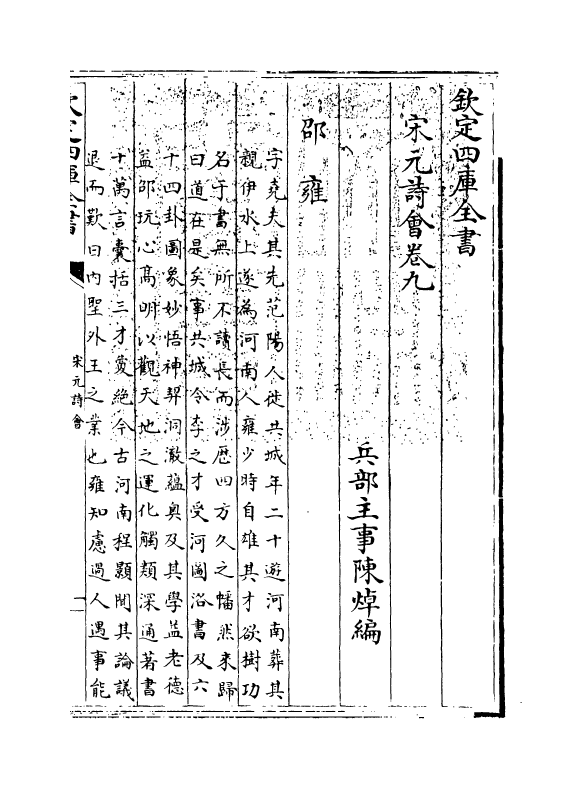 欽定四庫全書
宋元詩會卷九
兵部主事陳焯編
邵雍
字堯夫其先范陽人徙共城年二十遊河南葬其
親伊水上遂為河南人雍少時自雄其才欲樹功
名于書無所不讀長而涉歴四方久之幡然来歸
曰道在是矣事共城令李之才受河圖洛書及六
十四卦圖象妙悟神契洞澈蘊奥及其學益老德
益邵玩心髙明以觀天地之運化觸類深通著書
十萬言囊括三才夐絶今古河南程顥聞其論議
退而歎曰内聖外王之業也雍知慮過人遇事能
欽定四庫全書
宋元詩會
一